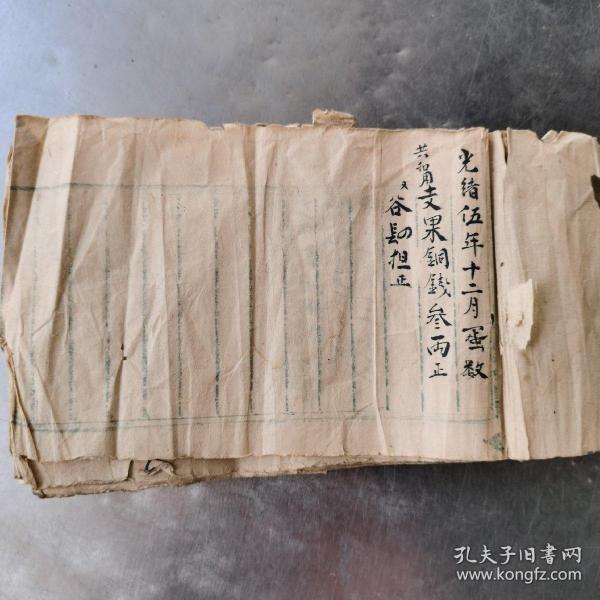 光緒伍年十二月蛋数
共和用支果銅錢叁両正
又谷担正
孔夫子旧书网
www.kongfz.com